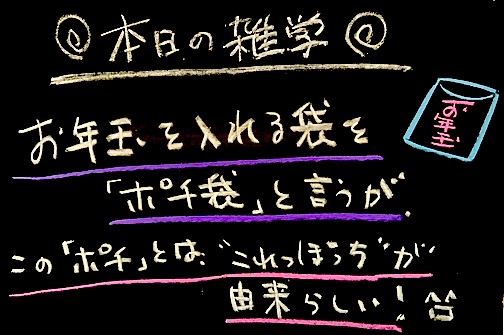 ＠本日の雑学＠
お年玉を入れる袋を
お年玉
「ポチ袋」と言うが、
この「ポチ」とは、“これっぽっち”が
由来らしい！